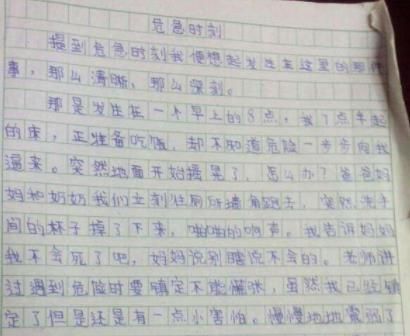 危急时刻
提到危急时刻我便想起发生在这里的那件
事，那么清晰，那么深刻。
那是发生在一个早上的8点，我7点半起
的床，正准备吃饭，却不知道危险一步步向我
逼来。突然地面开始摇晃了，怎么办？爸爸妈
妈和奶奶我们立刻往厕所墙角跑去，突然洗手
间的杯子掉了下来，啪啪的响声。我告诉妈妈
我不会死了吧，妈妈说别瞎说不会的。老师讲
过遇到危险时要镇定不能慌张，虽然我已经镇
定了但是还是有一点小害怕。慢慢地地震弱了